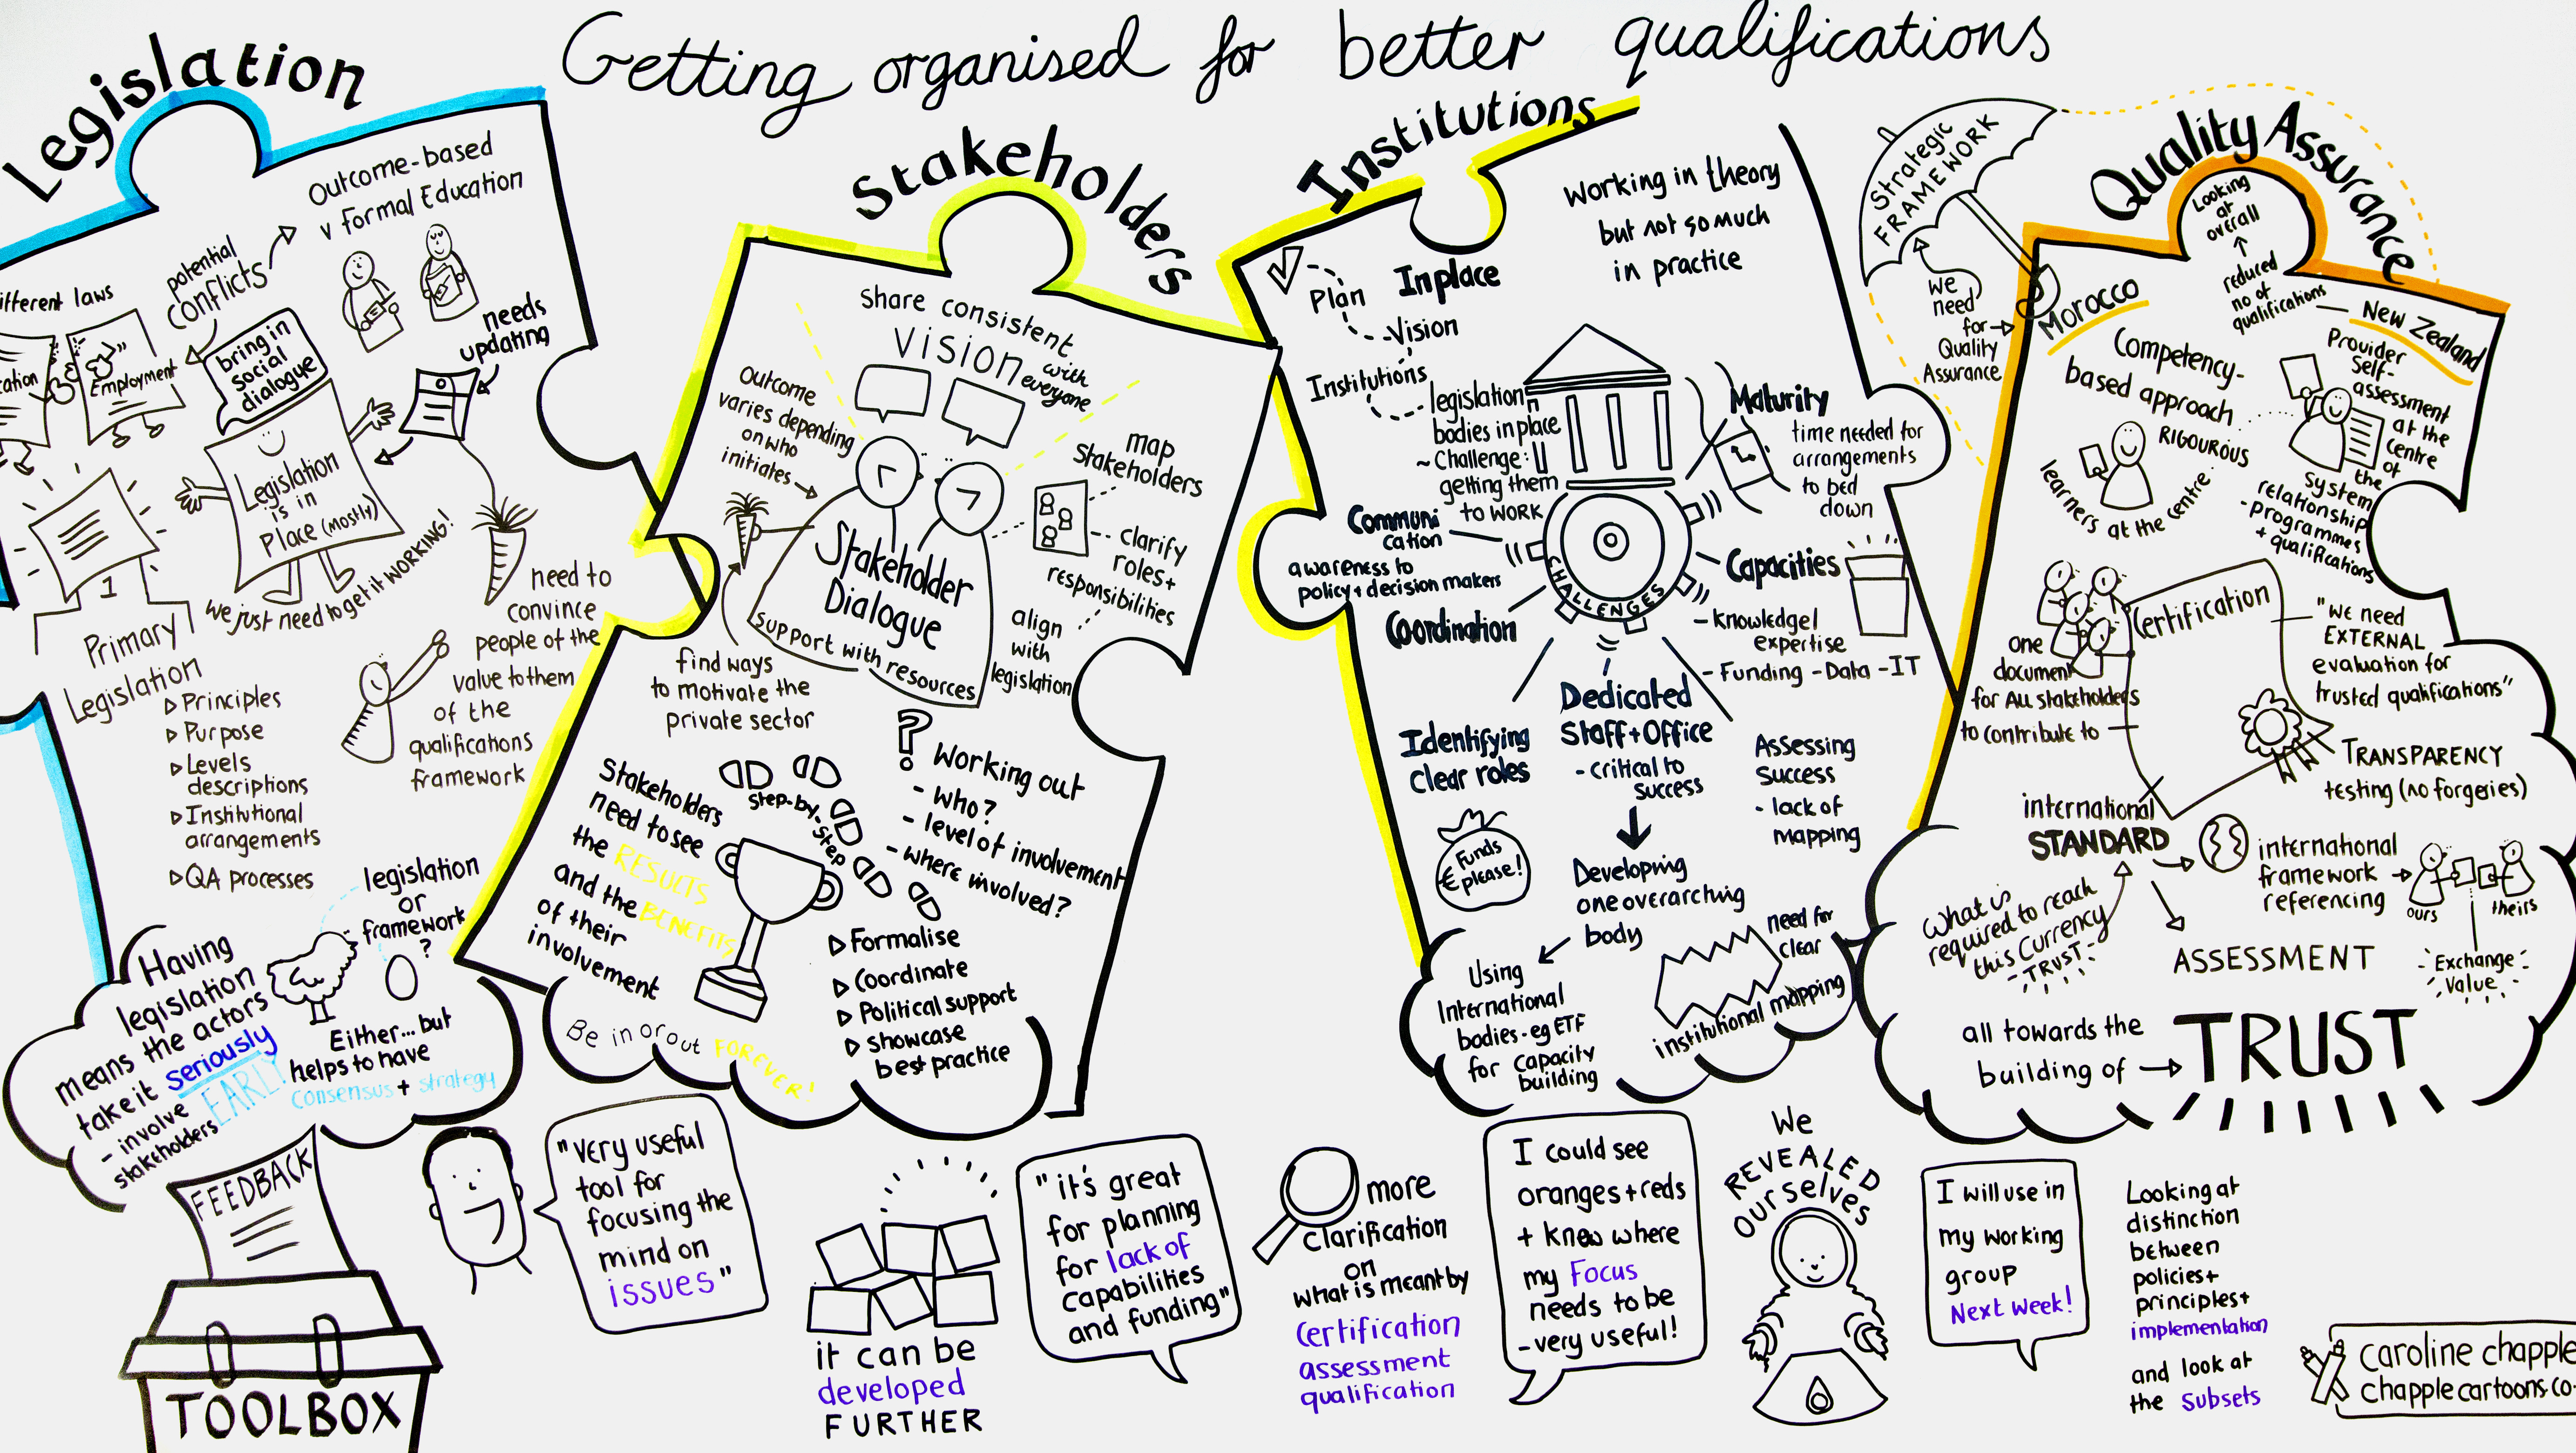 Getting organised for better qualifications
Legislation
Outcome-based
v formal Education
potential
conflicts
ifferent laws
cation
Employment
bring in
social
dialogue
needs
updating
Legislation
is in
Place (mostly)
we just need to get it WORKING!
1
Primary
Legislation
Principles
Purpose
Levels
descriptions
Institutional
arrangements
QA processes
need to
convince
people of the
value to them
of the
qualifications
framework
legislation
or
framework
?
Having
legislation
means the actors
take it seriously
- involve EARLY
stakeholders
Either... but
helps to have
consensus + strategy
Stakeholders
Share consistent
Vision with
everyone
Outcome
varies depending
on who
initiates
map
stakeholders
clarify
roles+
responsibilities
align
with
legislation
Stakeholder
Dialogue
support with resources
find ways
to motivate the
private sector
Stakeholders
need to see
the RESULTS
and the BENEFITS
of their
involvement
step-by-step
? Working out
- who?
- level of involvement
- where involved?
Formalise
Coordinate
Political support
showcase
best practice
Be in or out FOREVER!
Institutions
Working in theory
but not so much
in practice
Plan
In place
Vision
Institutions
legislation
bodies in place
~ Challenge:
getting them
to WORK
Communi
cation
awareness to
policy+decision makers
Coordination
CHALLENGES
Maturity
time needed for
arrangements
to bed
down
Capacities
- knowledge/
expertise
- Funding - Data - IT
Identifying
clear roles
Dedicated
Staff+Office
- critical to
success
Assessing
Success
- lack of
mapping
Funds
€ please!
Developing
one overarching
body
Using
International
bodies - eg ETF
for capacity
building
need for
clear
institutional mapping
Quality Assurance
Strategic
FRAMEWORK
we
need
for
Quality
Assurance
Looking
at
overall
reduced
no of
qualifications
Morocco
New Zealand
Competency-
based approach
RIGOUROUS
learners at the centre
Provider
Self-
assessment
at the
centre
of
the
System
relationship
- programmes
+ qualifications
Certification
one
document
for ALL stakeholders
to contribute to
"WE need
EXTERNAL
evaluation for
trusted qualifications"
TRANSPARENCY
testing (no forgeries)
international
STANDARD
international
framework
referencing
ours
theirs
Exchange
Value
What is
required to reach
this Currency
- TRUST -
ASSESSMENT
all towards the
building of
TRUST
FEEDBACK
TOOLBOX
"very useful
tool for
focusing the
mind on
issues"
it can be
developed
FURTHER
"it's great
for planning
for lack of
capabilities
and funding"
more
clarification
on
what is meant by
certification
assessment
qualification
I could see
oranges+reds
+ knew where
my Focus
needs to be
- very useful!
We
REVEALED
ourselves
I will use in
my working
group
Next week!
Looking at
distinction
between
policies+
principles+
implementation
and look at
the subsets
caroline chapple
chapplecartoons.co.